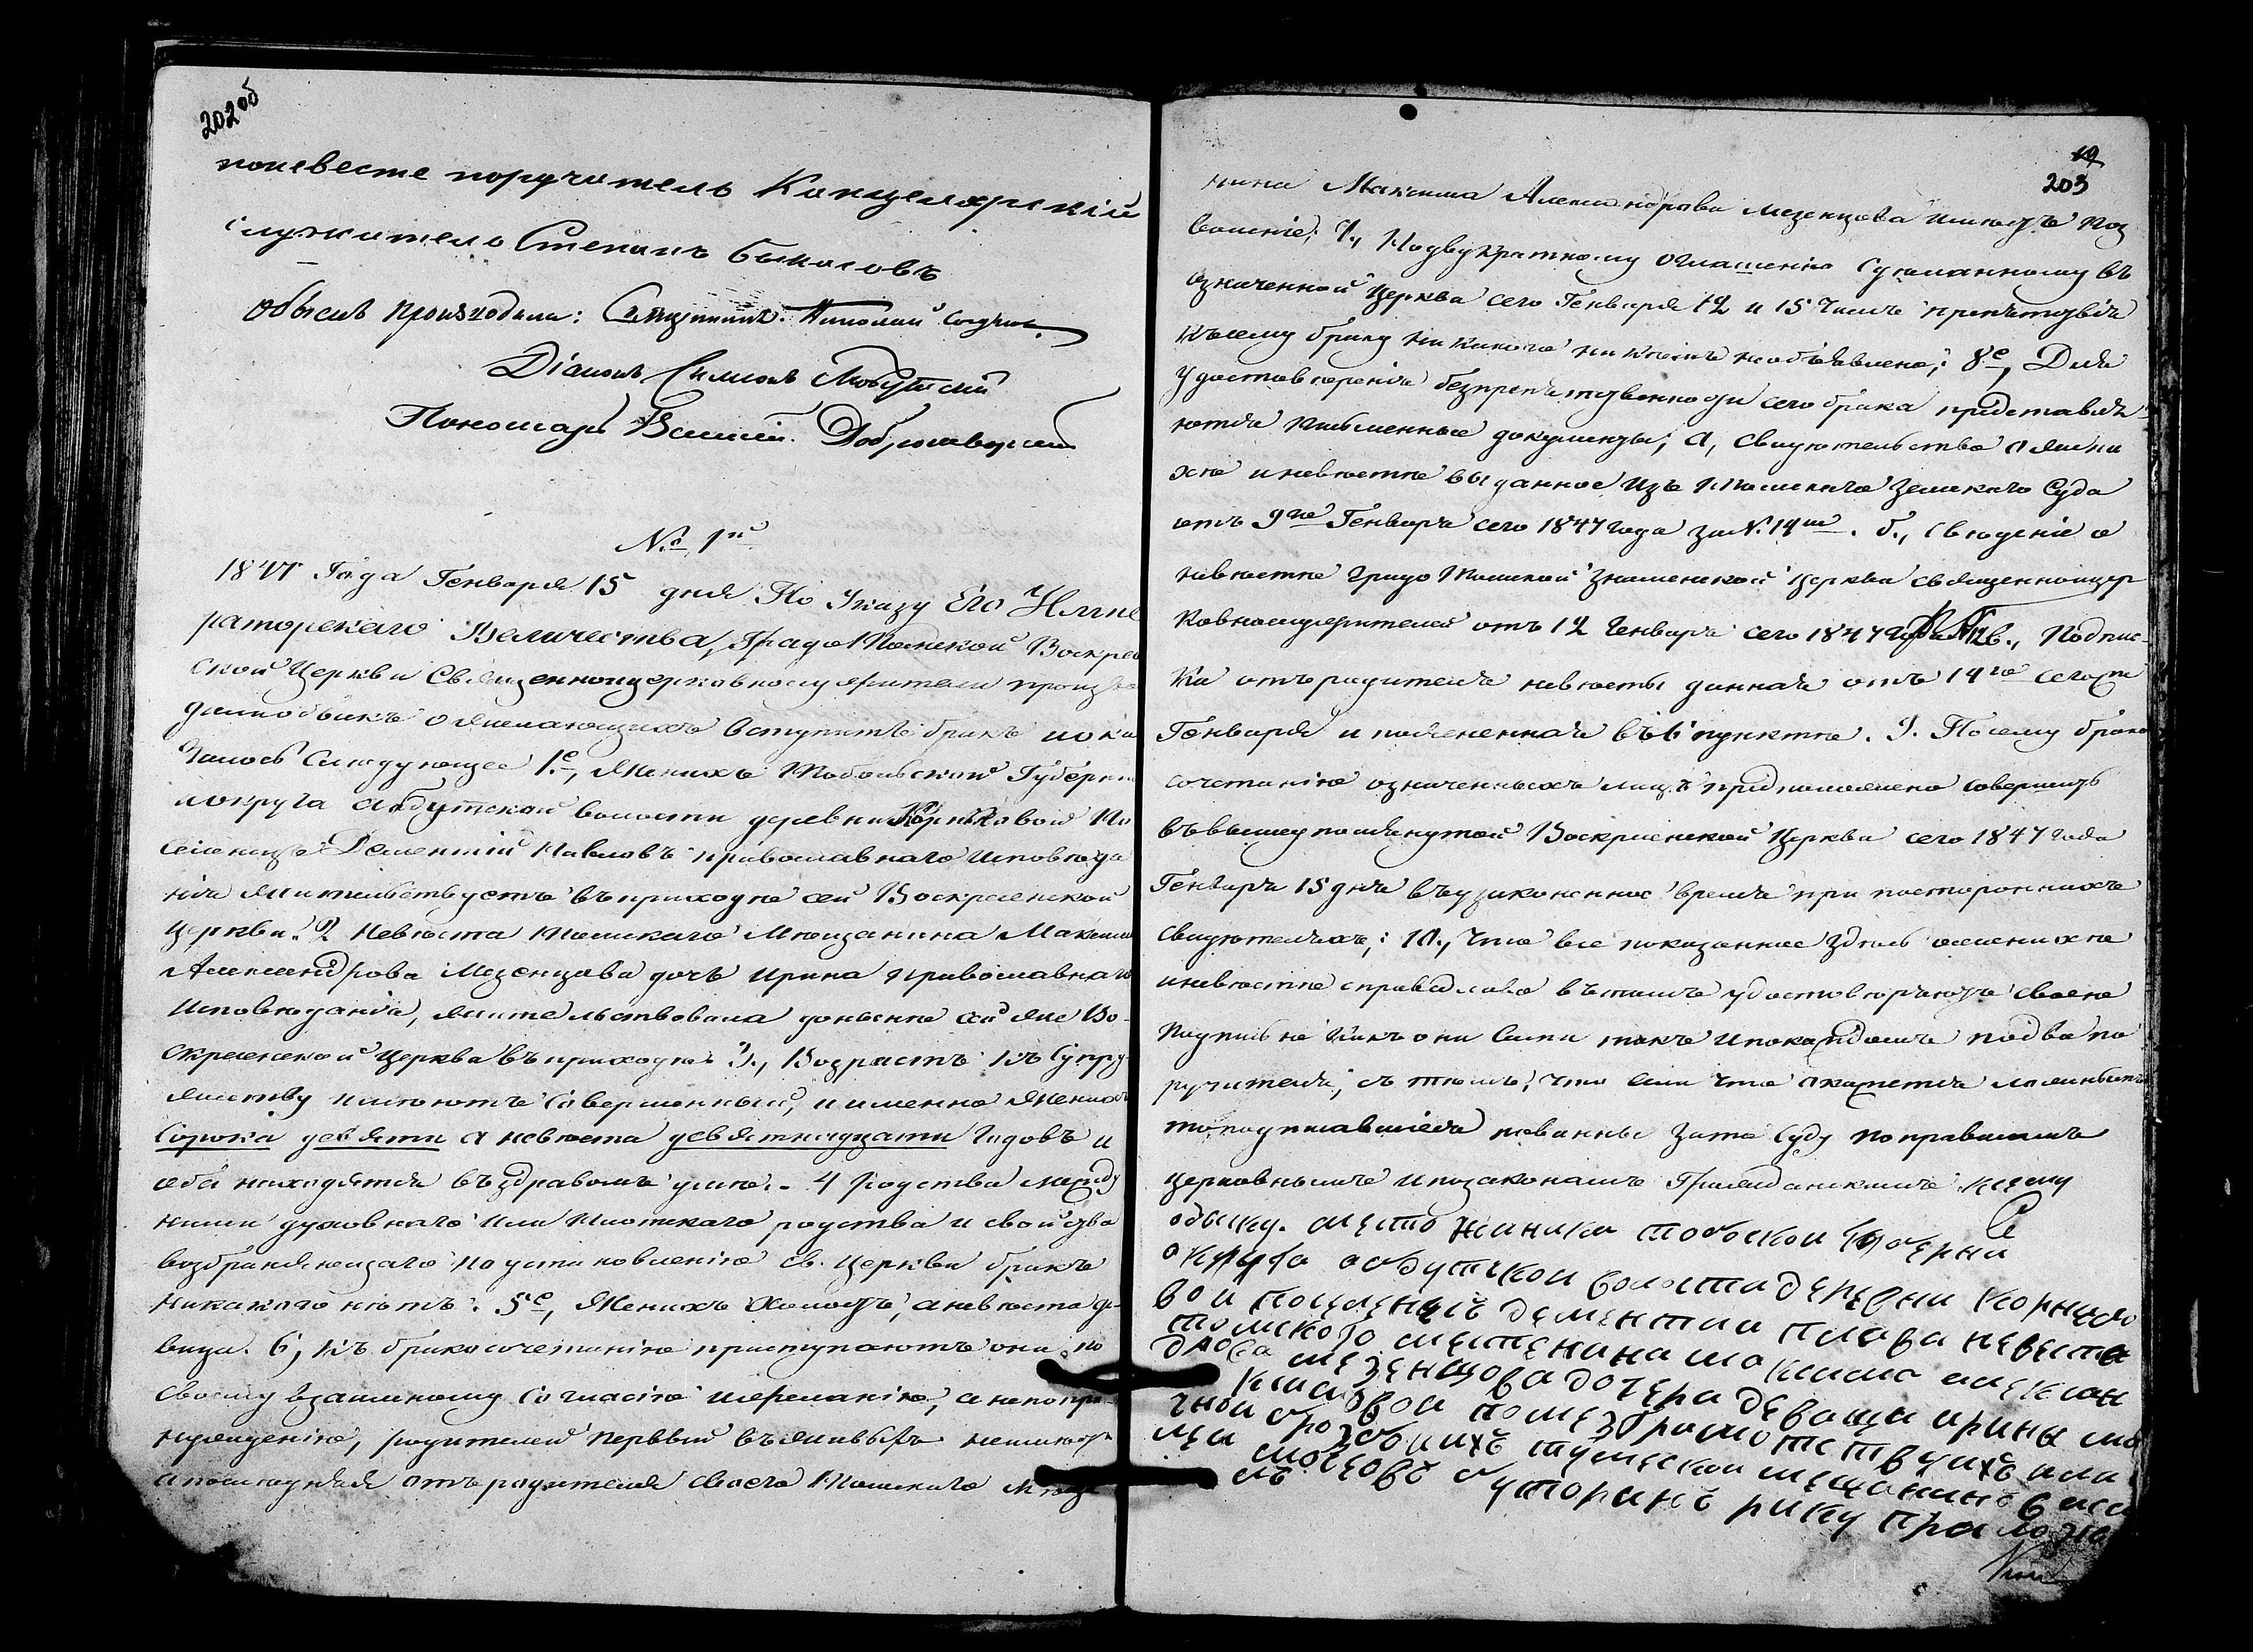 202об
поневесте поручатель Канцелярскій
служитель Степанъ
Обыскъ производили: Священникъ Николай
Діаконъ Симеонъ
Пономарь Василій Добро
№ 1й
1847 Года Генваря 15 дня По Указу Его Импе
раторскаго Величества, Градо Томской Воскресен
ской Церкви Священноцерковнослужители произве
ли обыскъ о желающихъ вступить бракъ и ока
залось Следующее 1е, Женихъ Тобольской Губерніи
округа волости деревни По
селенецъ Дементій Павловъ православнаго исповѣда
нія жительствуетъ въ приходѣ сей Воскресенской
Церкви. 2 Невѣста Томскаго Мѣщанина Максима
Александрова Мезенцова дочь Ирина православнаго
Исповѣданія, жительствовала донынѣ сей же Во-
скресенской Церкви въ приходѣ. 3., Возрастъ къ Супру
жеству имѣютъ совершенный, и именно Женихъ
Сорока девяти а невѣста девятнадцати Годовъ и
оба находятся въ здравомъ умѣ. 4 Родства между
ними духовнаго или плотскаго родства и свойства
возбраняющаго по установленію Св. Церкви бракъ
никакого нѣтъ. 5е, Женихъ Холостъ, а невѣста дѣ-
вица. 6, Къ бракосочетанію приступаютъ они по
своему взаимному согласію и желанію, а не по при-
нужденію, родителей первый въ живыхъ неимѣетъ
а послѣдняя отъ родителя своего Томскаго Мѣща
19
203
нина Максима Александрова Мезенцова имѣетъ поз
воленіе; 7., По двукратному оглашенію сдѣланному въ
означенной Церкви сего Генваря 12 и 15 чиселъ препятствія
къ сему браку никакого никѣмъ необъявлено; 8е, Для
удостовѣренія безпрепятственности сего брака представля
ются письменные документы; а, свидѣтельство о жени
хѣ и невѣстѣ выданное изъ Томскаго Земскаго Суда
отъ 9го Генваря сего 1847 года за №. 14м. б., Свѣденіе о
невѣстѣ Градо Томской Знаменской Церкви священноцер
ковнослужителей отъ 12 Генваря сего 1847 года в., Подпис-
ка отъ родителя невѣсты данная отъ 14го сего
Генваря и поясненная въ 6 пунктѣ. 9. Посему брако
сочетаніе означенныхъ лицъ предположено совершить
въ вышеупомянутой Воскресенской Церкви сего 1847 года
Генваря 15 дня въ узаконенное время при постороннихъ
свидѣтеляхъ; 10., Что все показанное здѣсь о женихѣ
и невѣстѣ справедливо въ томъ удостовѣряютъ своею
подписью какъ они сами такъ и по каждомъ по два по
ручителя, съ тѣмъ, что если что окажется ложнымъ
то подписавшіеся повинны за то Суду по правиламъ
церковнымъ и по законамъ Гражданскимъ. Ксему
обыску. место жениха губерни
округа волости деревни
вои поселенецъ дементиа павлова невесты
томского мещенина максима алексан
мезенцова дочера девица ирины